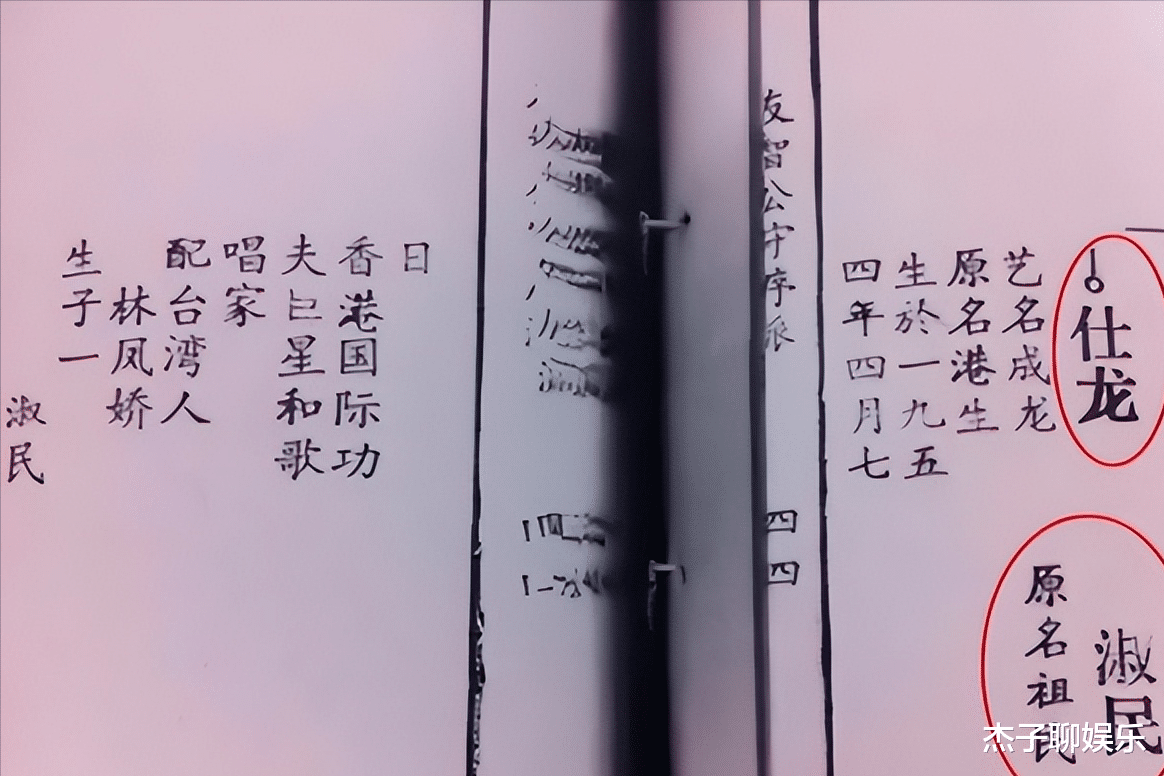 仕龙
艺名成龙
原名港生
生於一九五
四年四月七
淑民
原名祖民
友智公字序派
四四
日
香港国际功
夫巨星和歌
唱家
配台湾人
林凤娇
生子一
淑民
杰子聊娱乐